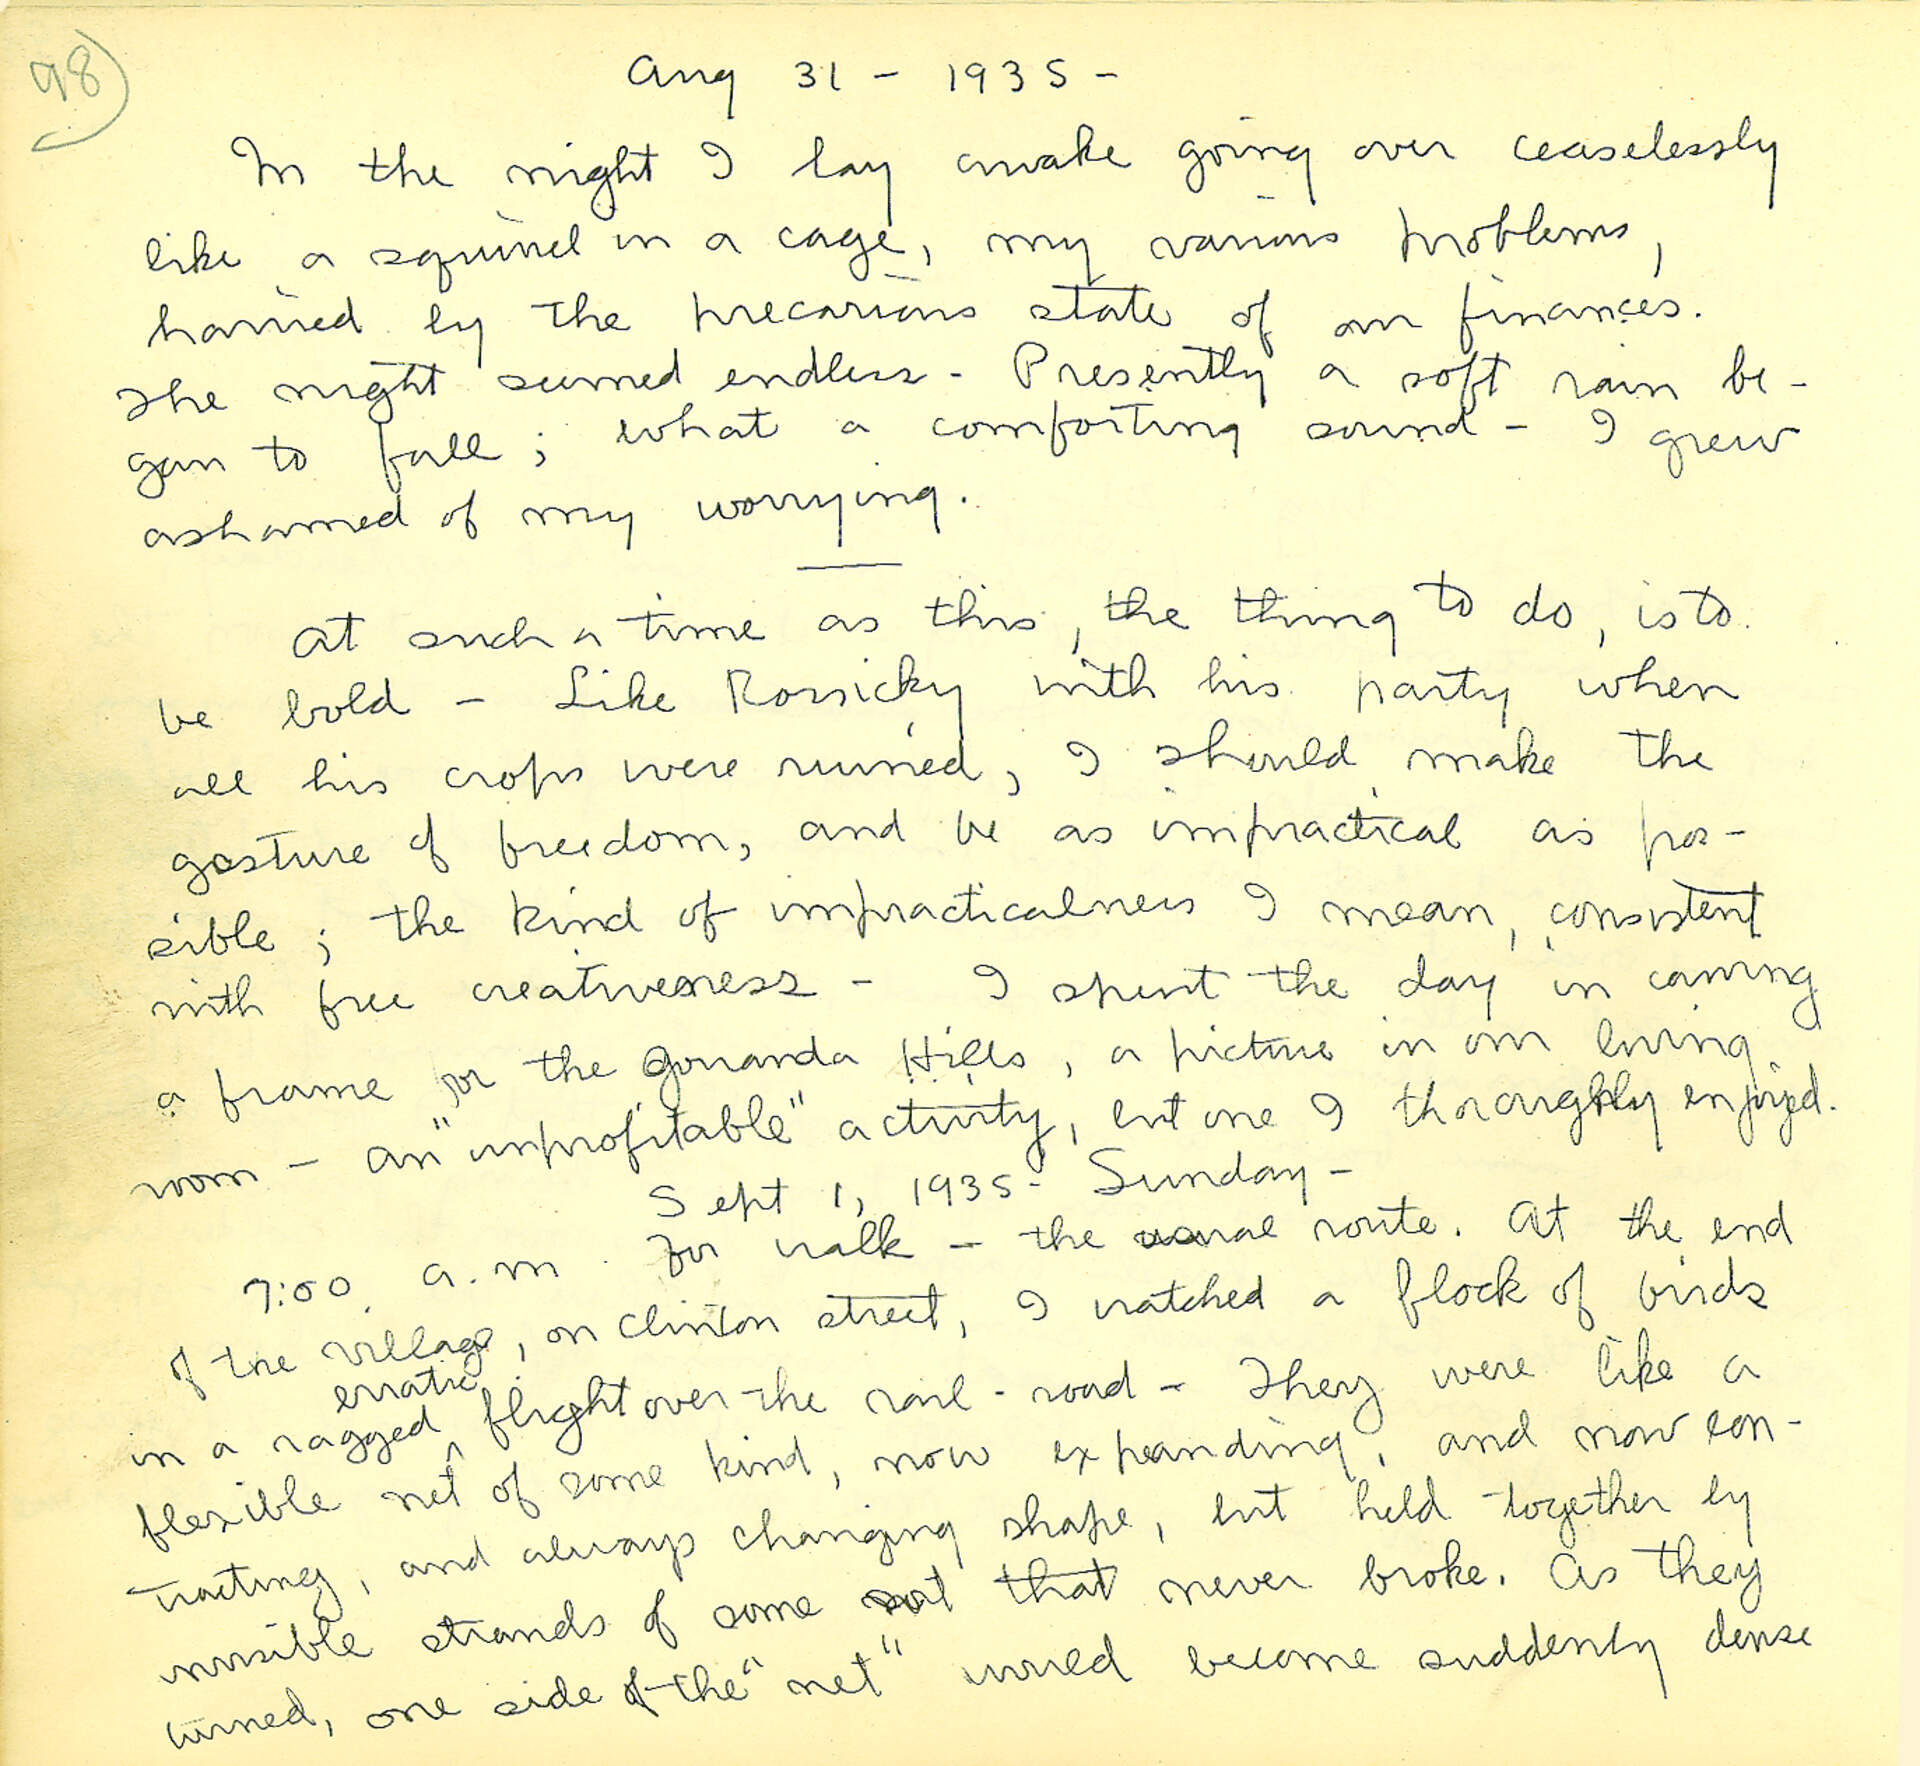 98
Aug 31 - 1935 -
In the night I lay awake going over ceaselessly
like a squirrel in a cage, my various problems,
harried by the precarious state of our finances.
The night seemed endless - Presently a soft rain be-
gan to fall; what a comforting sound - I grew
ashamed of my worrying.
At such a time as this, the thing to do, is to
be bold - Like Rossicky with his party when
all his crops were ruined, I should make the
gesture of freedom, and be as impractical as pos-
sible; the kind of impracticalness I mean, consistent
with free creativeness - I spent the day in carving
a frame for the Gowanda Hills, a picture in our living
room - an "unprofitable" activity, but one I thoroughly enjoyed.
Sept 1, 1935 - Sunday -
7:00 a.m. For walk - the usual route. At the end
of the village, on Clinton street, I watched a flock of birds
in a ragged erratic flight over the rail-road - They were like a
flexible net of some kind, now expanding, and now con-
tracting, and always changing shape, but held together by
invisible strands of some sort that never broke. As they
turned, one side of the "net" would become suddenly dense